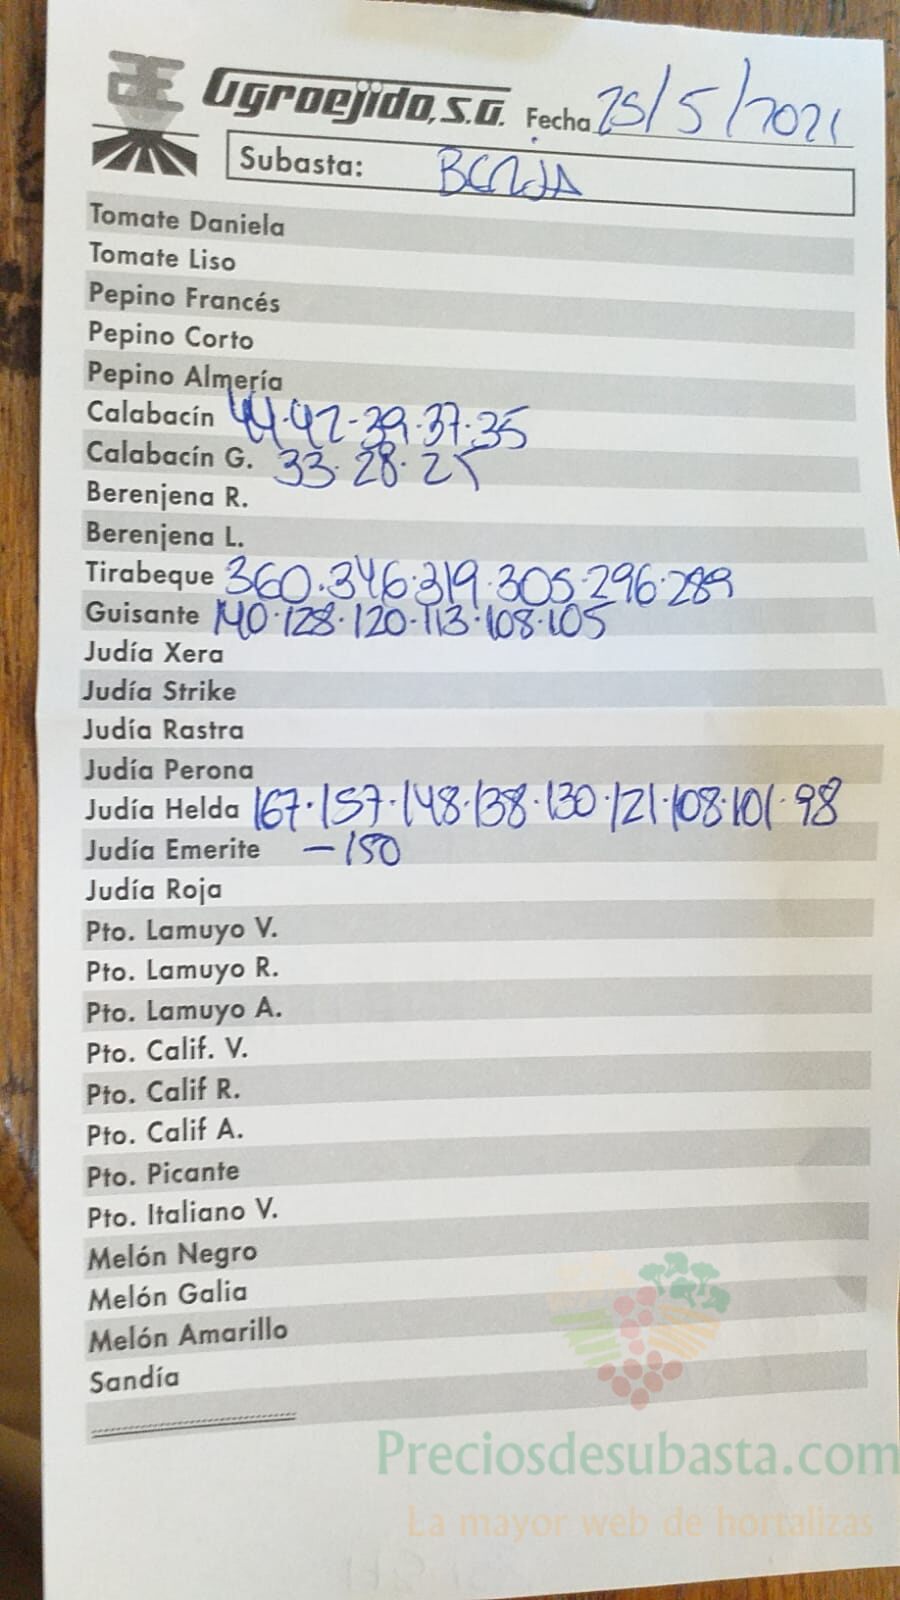 Agroejido, S.A. Fecha 25/5/2021
Subasta: BERJA
Tomate Daniela
Tomate Liso
Pepino Francés
Pepino Corto
Pepino Almería
Calabacín 44·42-39·37·35
Calabacín G. 33·28·25
Berenjena R.
Berenjena L.
Tirabeque 360·346·319·305·296·289
Guisante 140·128·120·113·108·105
Judía Xera
Judía Strike
Judía Rastra
Judía Perona
Judía Helda 167·157·148·138·130·121·108·101·98
Judía Emerite —150
Judía Roja
Pto. Lamuyo V.
Pto. Lamuyo R.
Pto. Lamuyo A.
Pto. Calif. V.
Pto. Calif R.
Pto. Calif A.
Pto. Picante
Pto. Italiano V.
Melón Negro
Melón Galia
Melón Amarillo
Sandía
Preciosdesubasta.com
La mayor web de hortalizas